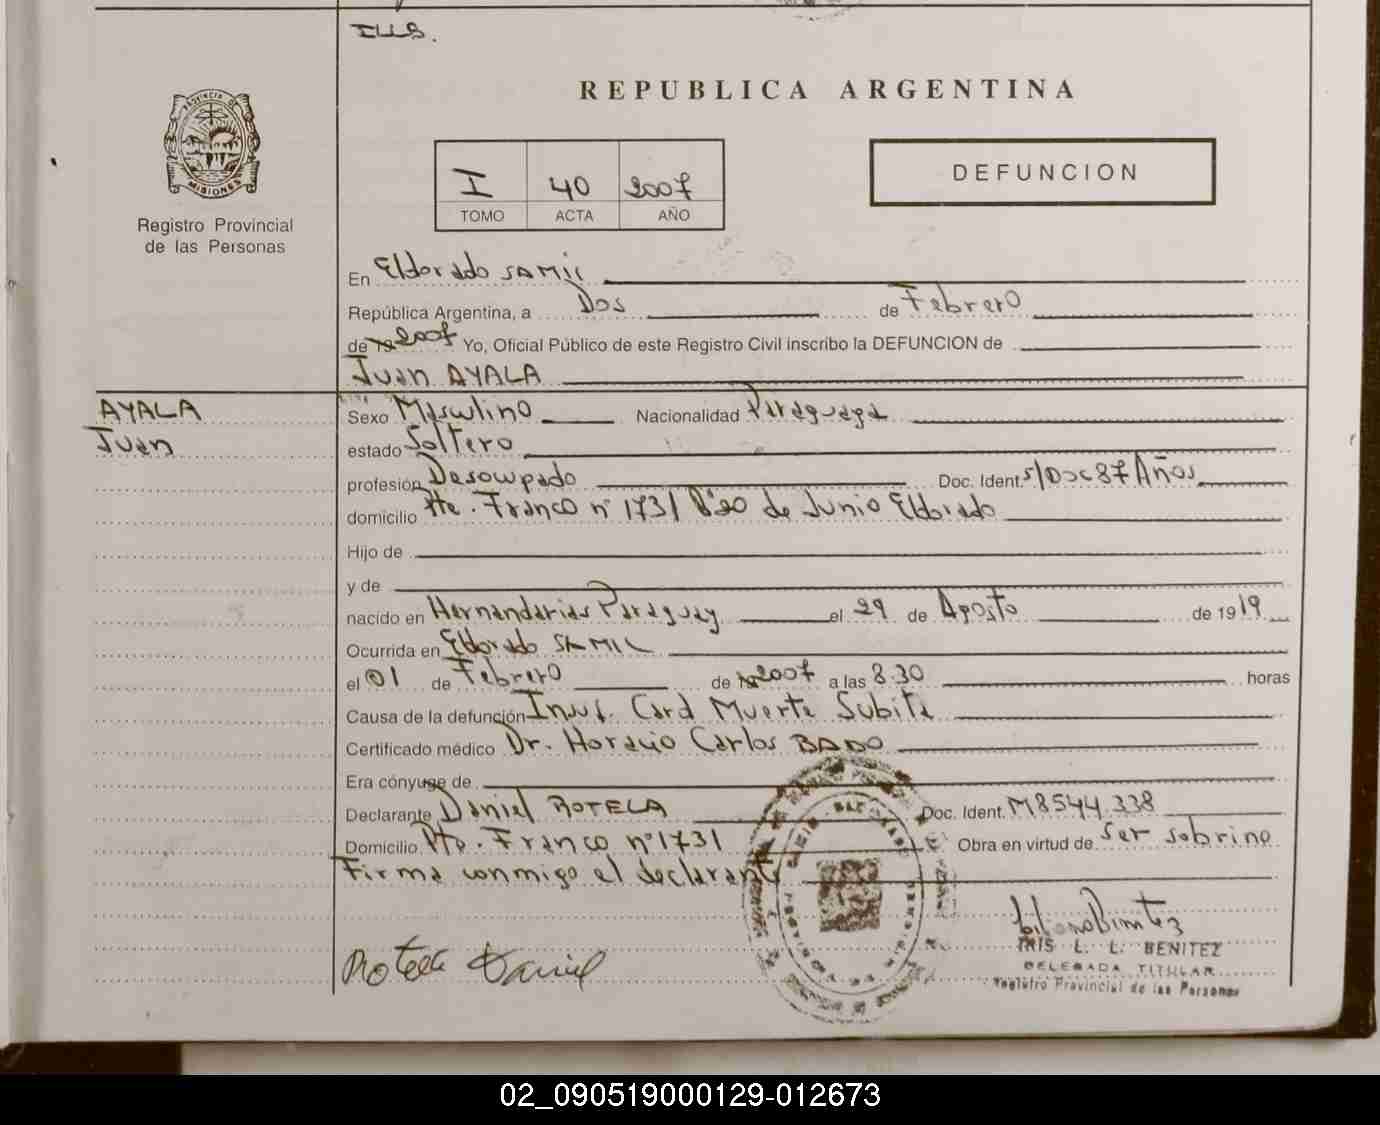 REPUBLICA ARGENTINA
PROVINCIA DE
MISIONES
Registro Provincial
de las Personas
I 40 2007
TOMO ACTA AÑO
DEFUNCION
En Eldorado SAMIC
República Argentina, a Dos de Febrero
de 19 2007 Yo, Oficial Público de este Registro Civil inscribo la DEFUNCION de
Juan AYALA
AYALA
Juan
Sexo Masculino Nacionalidad Paraguaya
estado Soltero
profesión Desocupado Doc. Ident. s/Doc 87 Años
domicilio Pte. Franco n° 1731 Bº 20 de Junio Eldorado
Hijo de
y de
nacido en Hernandarias Paraguay el 29 de Agosto de 1919
Ocurrida en Eldorado SAMIC
el 01 de Febrero de 19 2007 a las 8.30 horas
Causa de la defunción Insuf. Card Muerte Subita
Certificado médico Dr. Horacio Carlos BADO
Era cónyuge de
Declarante Daniel ROTELA Doc. Ident. M8544.338
Domicilio Pte. Franco n° 1731 Obra en virtud de ser sobrino
Firma conmigo el declarante
Rotela Daniel
IRIS L. L. BENITEZ
DELEGADA TITULAR
Registro Provincial de las Personas
02_090519000129-012673